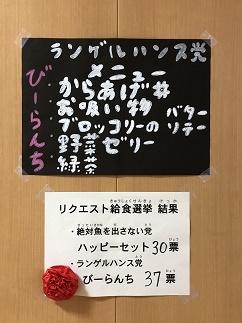 ランゲルハンス党
びーらんち
メニュー
からあげ丼
お吸い物
ブロッコリーの バターソテー
野菜ゼリー
緑茶
リクエスト給食選挙 結果
・絶対魚を出さない党
ハッピーセット 30票
・ランゲルハンス党
びーらんち 37票